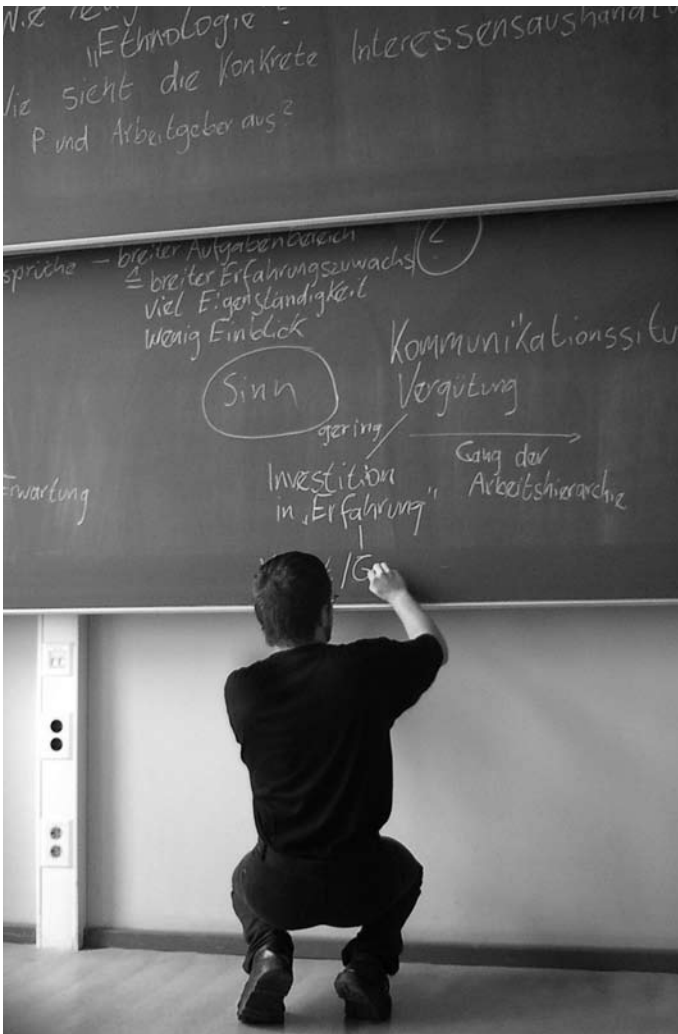 „Ethnologie"?
Wie sieht die Konkrete Interessensaushandlu
P und Arbeitgeber aus?
sprüche – breiter Aufgabenbereich
≙ breiter Erfahrungszuwachs
viel Eigenständigkeit
wenig Einblick
Kommunikationssitu
Sinn
Vergütung
gering
Gang der
Arbeitshierarchie
Erwartung
Investition
in „Erfahrung"
/G